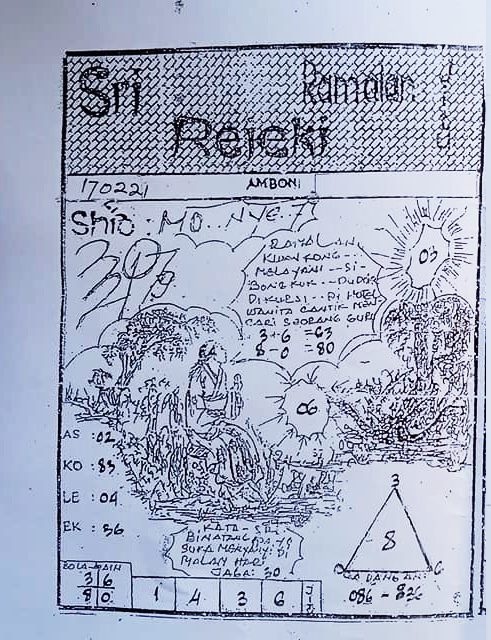 Sri
Ramalan
Jitu
Rejeki
170221
AMBON
Shio : MO..NYE.T
RAMALAN
KWAN KONG..
MELAYANI--SI-
BONGKUK--DUDUK
DI KURSI--DI HOTEL
WANITA CANTIK MEN
CARI SEORANG GURU
3+6 =63
8-0 =80
03
06
AS : 02
KO : 83
LE : 04
EK : 36
KATA-
BINATANG
SUKA MENYANYI DI
MALAM HARI
JAGA: 30
3
8
0
6
CADANGAN:
086 - 836
BOLA MAIN
3 6
8 0
1 4 3 6